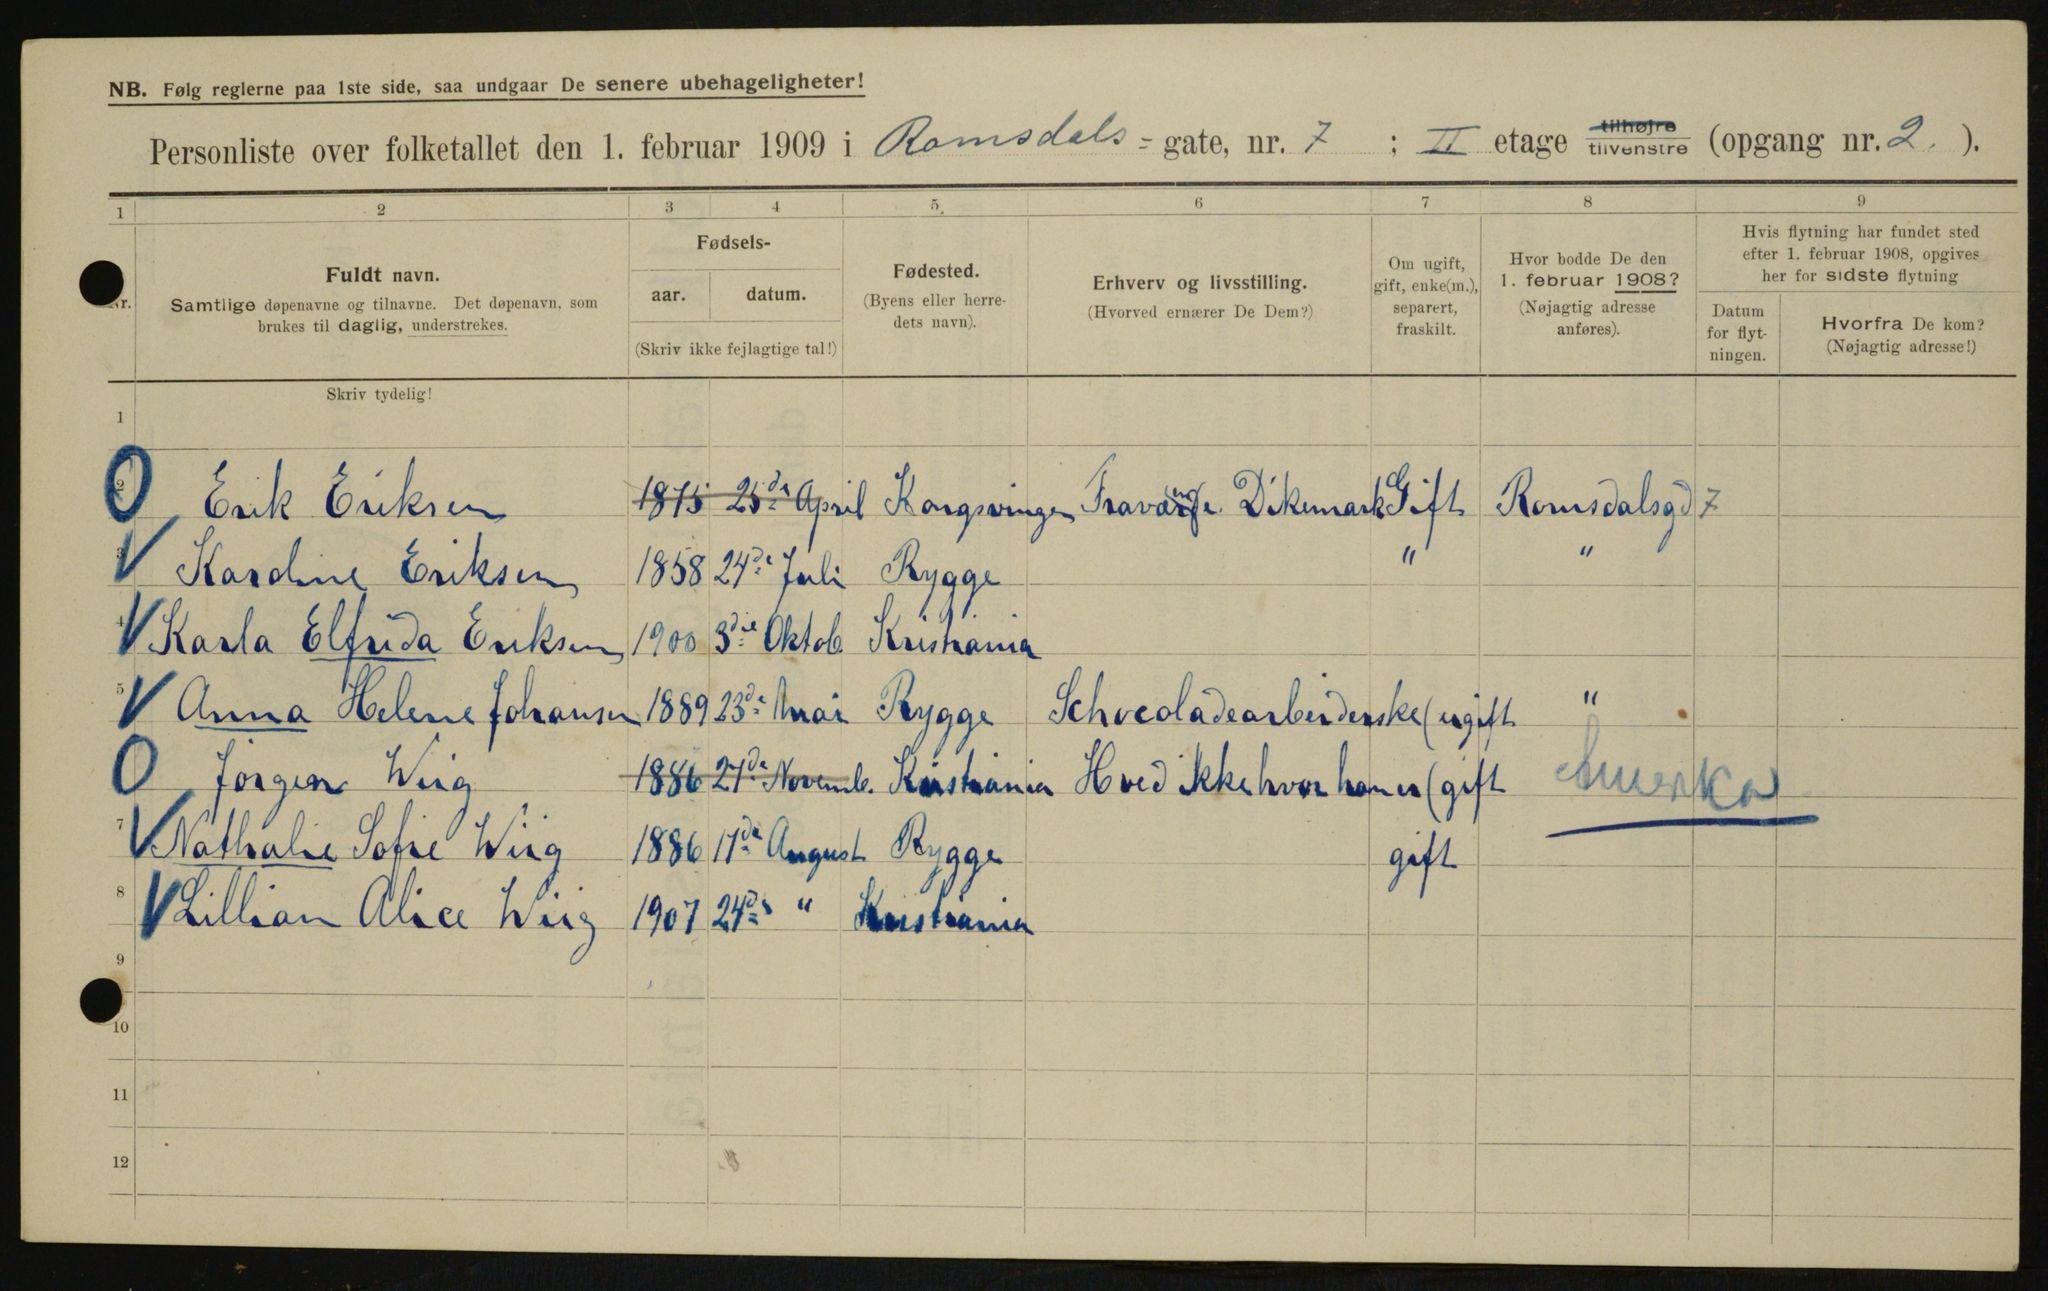 NB. Følg reglerne paa 1ste side, saa undgaar De senere ubehageligheter!
Personliste over folketallet den 1. februar 1909 i Romsdals=gate, nr. 7 ; II etage tilhøjre tilvenstre (opgang nr. 2. ).
1 2 3 4 5. 6 7 8 9
Nr.
Fuldt navn.
Samtlige døpenavne og tilnavne. Det døpenavn, som
brukes til daglig, understrekes.
Fødsels-
aar. datum.
(Skriv ikke fejlagtige tal!)
Fødested.
(Byens eller herre-
dets navn).
Erhverv og livsstilling.
(Hvorved ernærer De Dem?)
Om ugift,
gift, enke(m.),
separert,
fraskilt.
Hvor bodde De den
1. februar 1908?
(Nøjagtig adresse
anføres).
Hvis flytning har fundet sted
efter 1. februar 1908, opgives
her for sidste flytning
Datum
for flyt-
ningen.
Hvorfra De kom?
(Nøjagtig adresse!)
Skriv tydelig!
1
2 Erik Eriksen 1875 25de April Kongsvinger Dikemark Gift Romsdalsgd 7
3 Karoline Eriksen 1858 24de Juli Rygge " "
4 Karla Elfrida Eriksen 1900 3die Oktob. Kristiania
5 Anna Helene Johansen 1889 23de Mai Rygge Schocoladearbeiderske (ugift "
Jørgen Wiig 1886 27de Novemb. Kristiania Hved ikke hvor han er (gift Amerka
7 Nathalie Sofie Wiig 1886 17de August Rygge gift
8 Lillian Alice Wiig 1907 24de " Kristiania
9
10
11
12